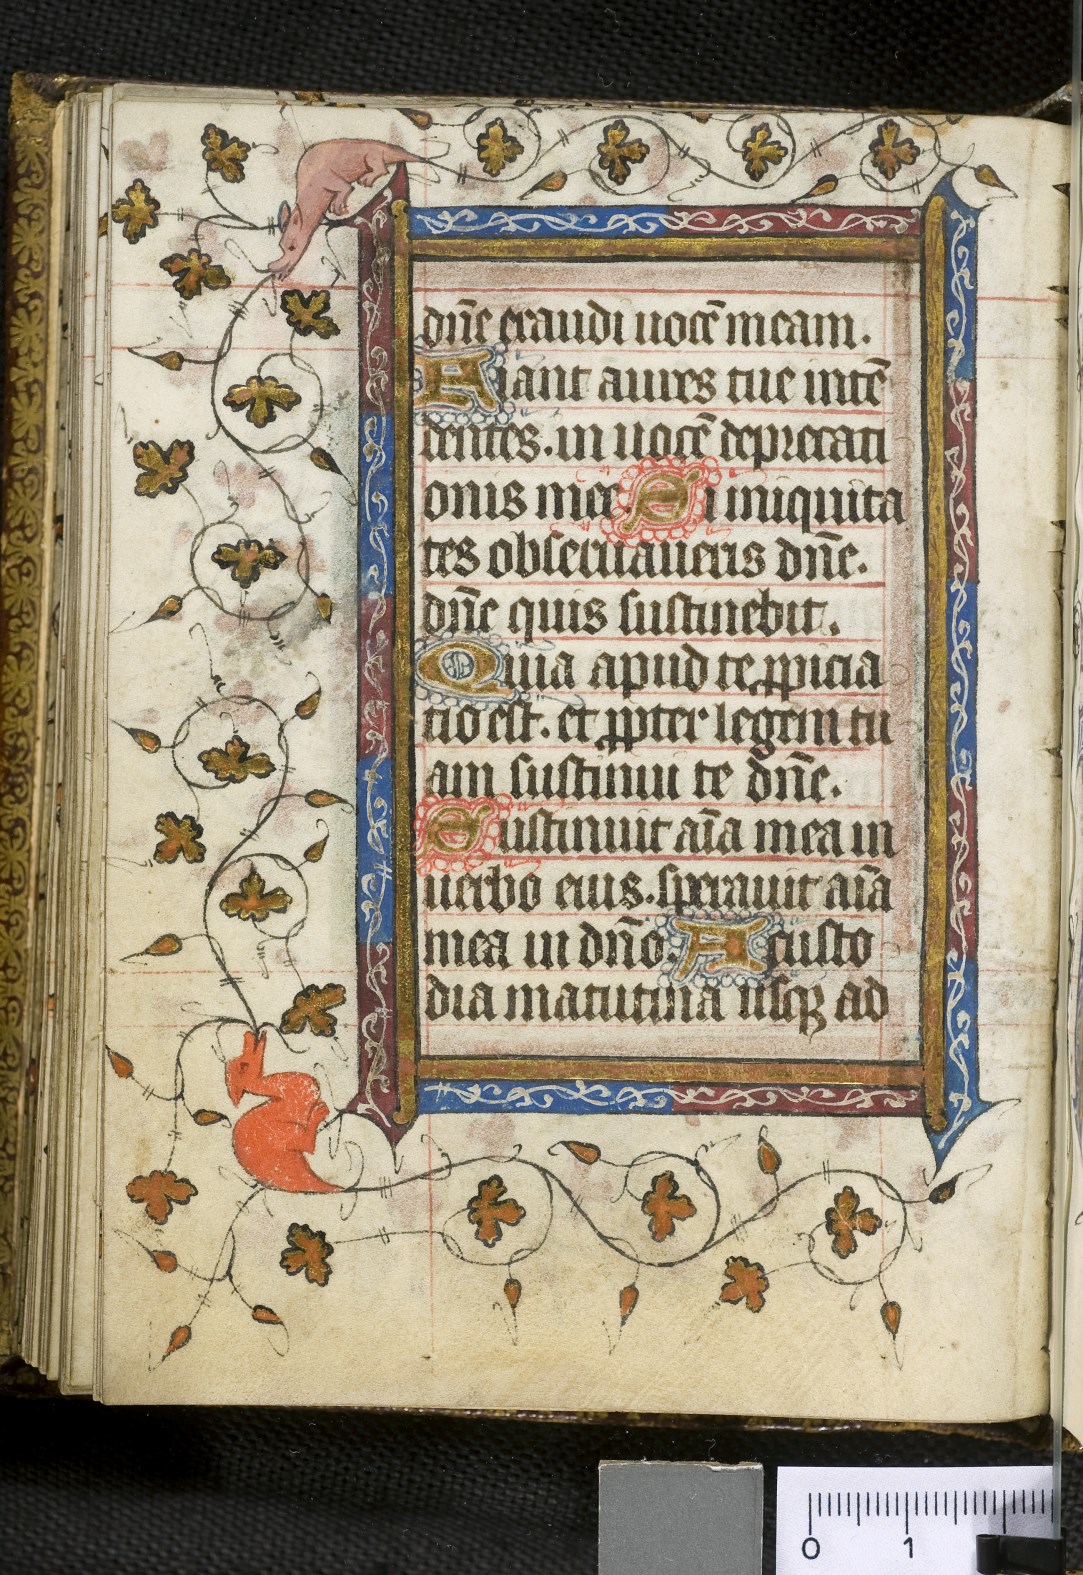 dn̄e exaudi uocē meam.
Fiant aures tue intē
dentes. in uocē deprecati
onis mee. Si iniquita
tes obseruaueris dn̄e.
dn̄e quis sustinebit.
Quia apud te ꝓpicia
tio est. et ꝓpter legem tu
am sustinui te dn̄e.
Sustinuit aīa mea in
uerbo eius. sperauit aīa
mea in dn̄o. A custo
dia matutina usqꝫ ad
0 1